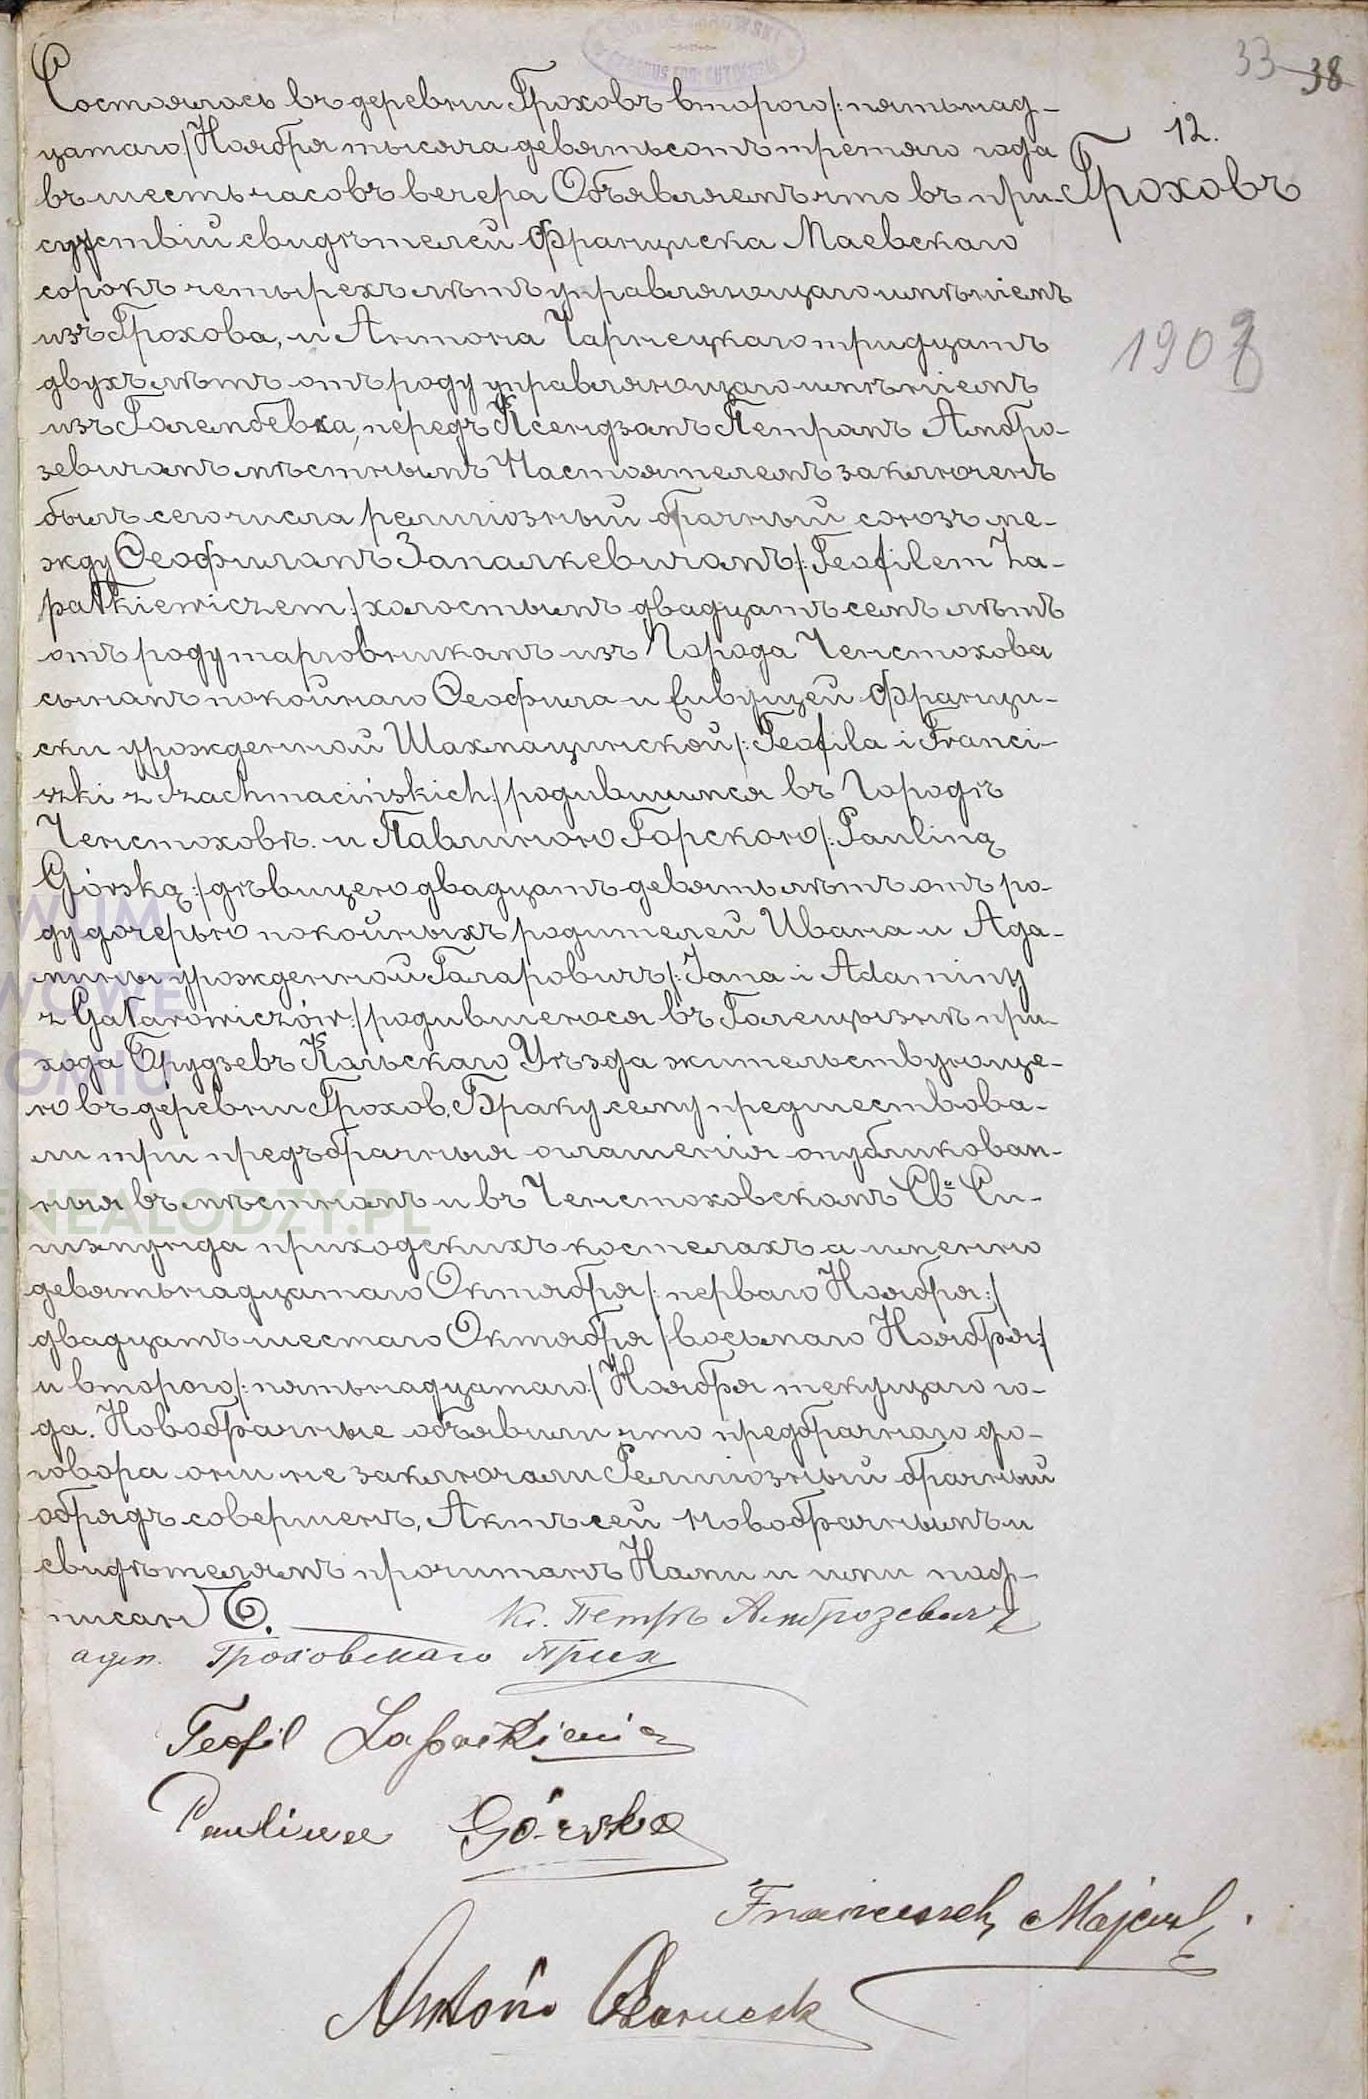 33 38
12.
Гроховъ
1903
Состоялось въ деревни Гроховъ второго /: пятьнад-
цатаго / Ноября тысяча девятьсотъ третяго года
въ шесть часовъ вечера Объявляемъ что въ при-
сутствіи свидѣтелей Франциска Маевскаго
сорокъ четырехъ лѣтъ управляющаго имѣніемъ
изъ Грохова, и Антона Чарнецкаго тридцатъ
двухъ лѣтъ отъ роду управляющаго имѣніемъ
изъ Голембевка, передъ Ксендзомъ Петромъ Амбро-
зевичомъ мѣстнымъ Настоятелемъ заключенъ
былъ сего числа религіозный брачный союзъ ме-
жду Ѳеофиломъ Запалкевичомъ /: Teofilem Za-
pałkiewiczem :/ холостымъ двадцатъ семъ лѣтъ
отъ роду торговникомъ изъ Города Ченстохова
сыномъ покойнаго Ѳеофила и живущей Францы-
ски урожденной Шахмацинской /: Teofila i Franci-
szki z Szachmacińskich :/ родившимся въ Городѣ
Ченстоховѣ. и Павлиною Горскою /: Pauliną
Górską :/ дѣвицею двадцатъ девять лѣтъ отъ ро-
ду дочерью покойныхъ родителей Ивана и Ада-
мины урожденной Галаровичъ /: Jana i Adaminy
z Gałarowiczów :/ родившеюся въ Голешызнѣ при-
хода Брудзевъ Кольскаго Уѣзда жительствующе-
ю въ деревни Грохов, Браку сему предшествова-
ли три предъбрачныя оглашенія опубликован-
ныя въ мѣстномъ и въ Ченстоховскомъ Св. Си-
гизмунда приходскихъ костелахъ а именно
девятьнадцатаго Октября /: перваго Ноября :/
двадцатъ шестаго Октября / восьмаго Ноября :/
и второго /: пятьнадцатаго / Ноября текущаго го-
да. Новобрачные объявили что предбрачнаго до-
говора они не заключали Религіозный брачный
обрядъ совершенъ, Актъ сей новобрачнымъ и
свидѣтелямъ прочитанъ Нами и ими под-
писанъ.
Кс. Петръ Амброзевичъ
адм. Гроховскаго Прих
Teofil Zapałkiewicz
Paulina Górska
Franciszek Majewski
Antoni Czarnecki